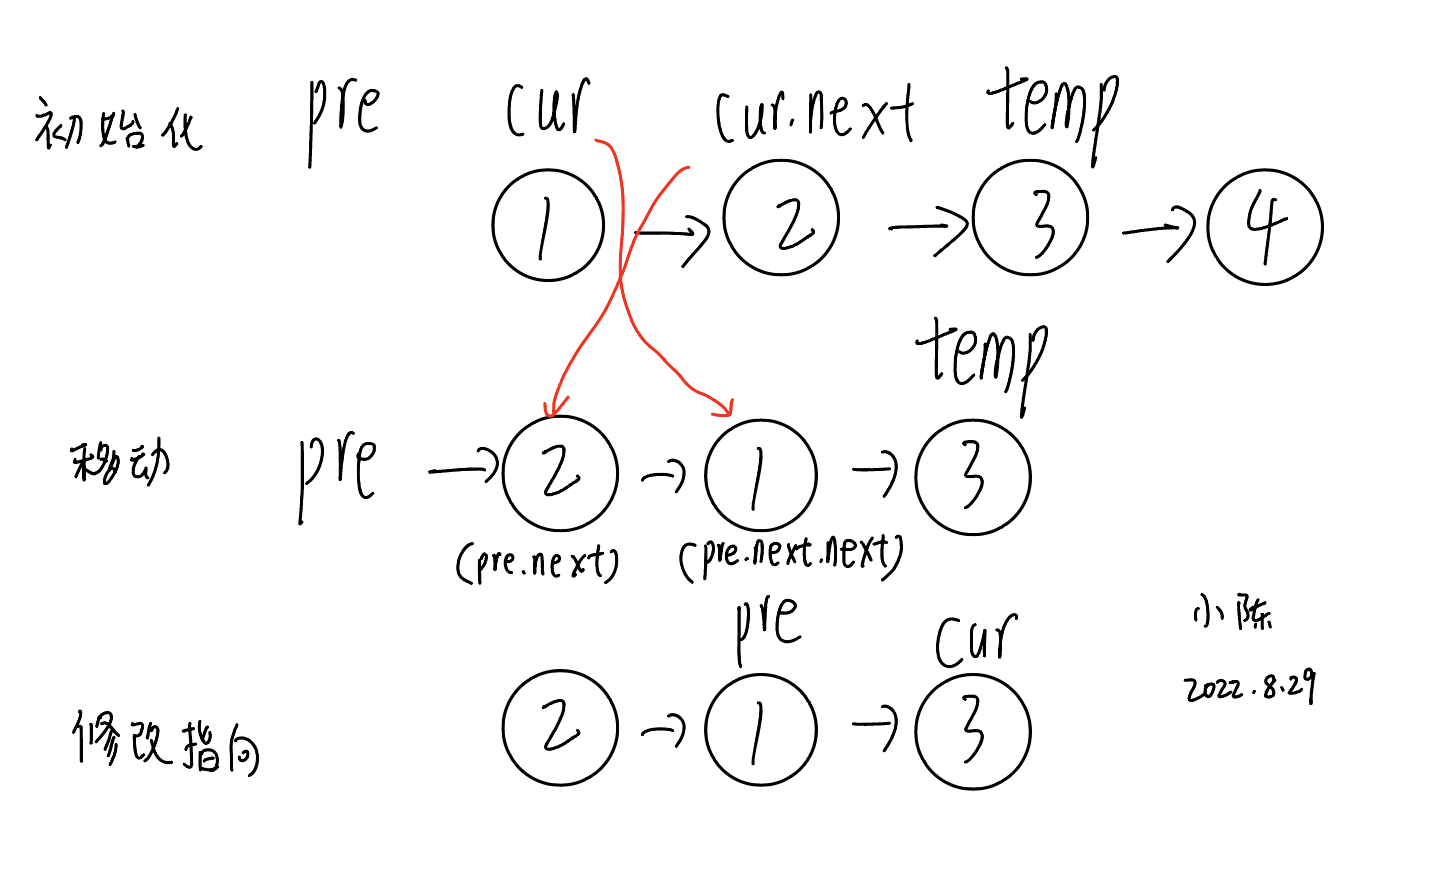 初始化 pre cur cur.next temp
1 → 2 → 3 → 4
temp
移动 pre → 2 → 1 → 3
(pre.next) (pre.next.next)
pre cur
小陈
2022.8.29
修改指向 2 → 1 → 3